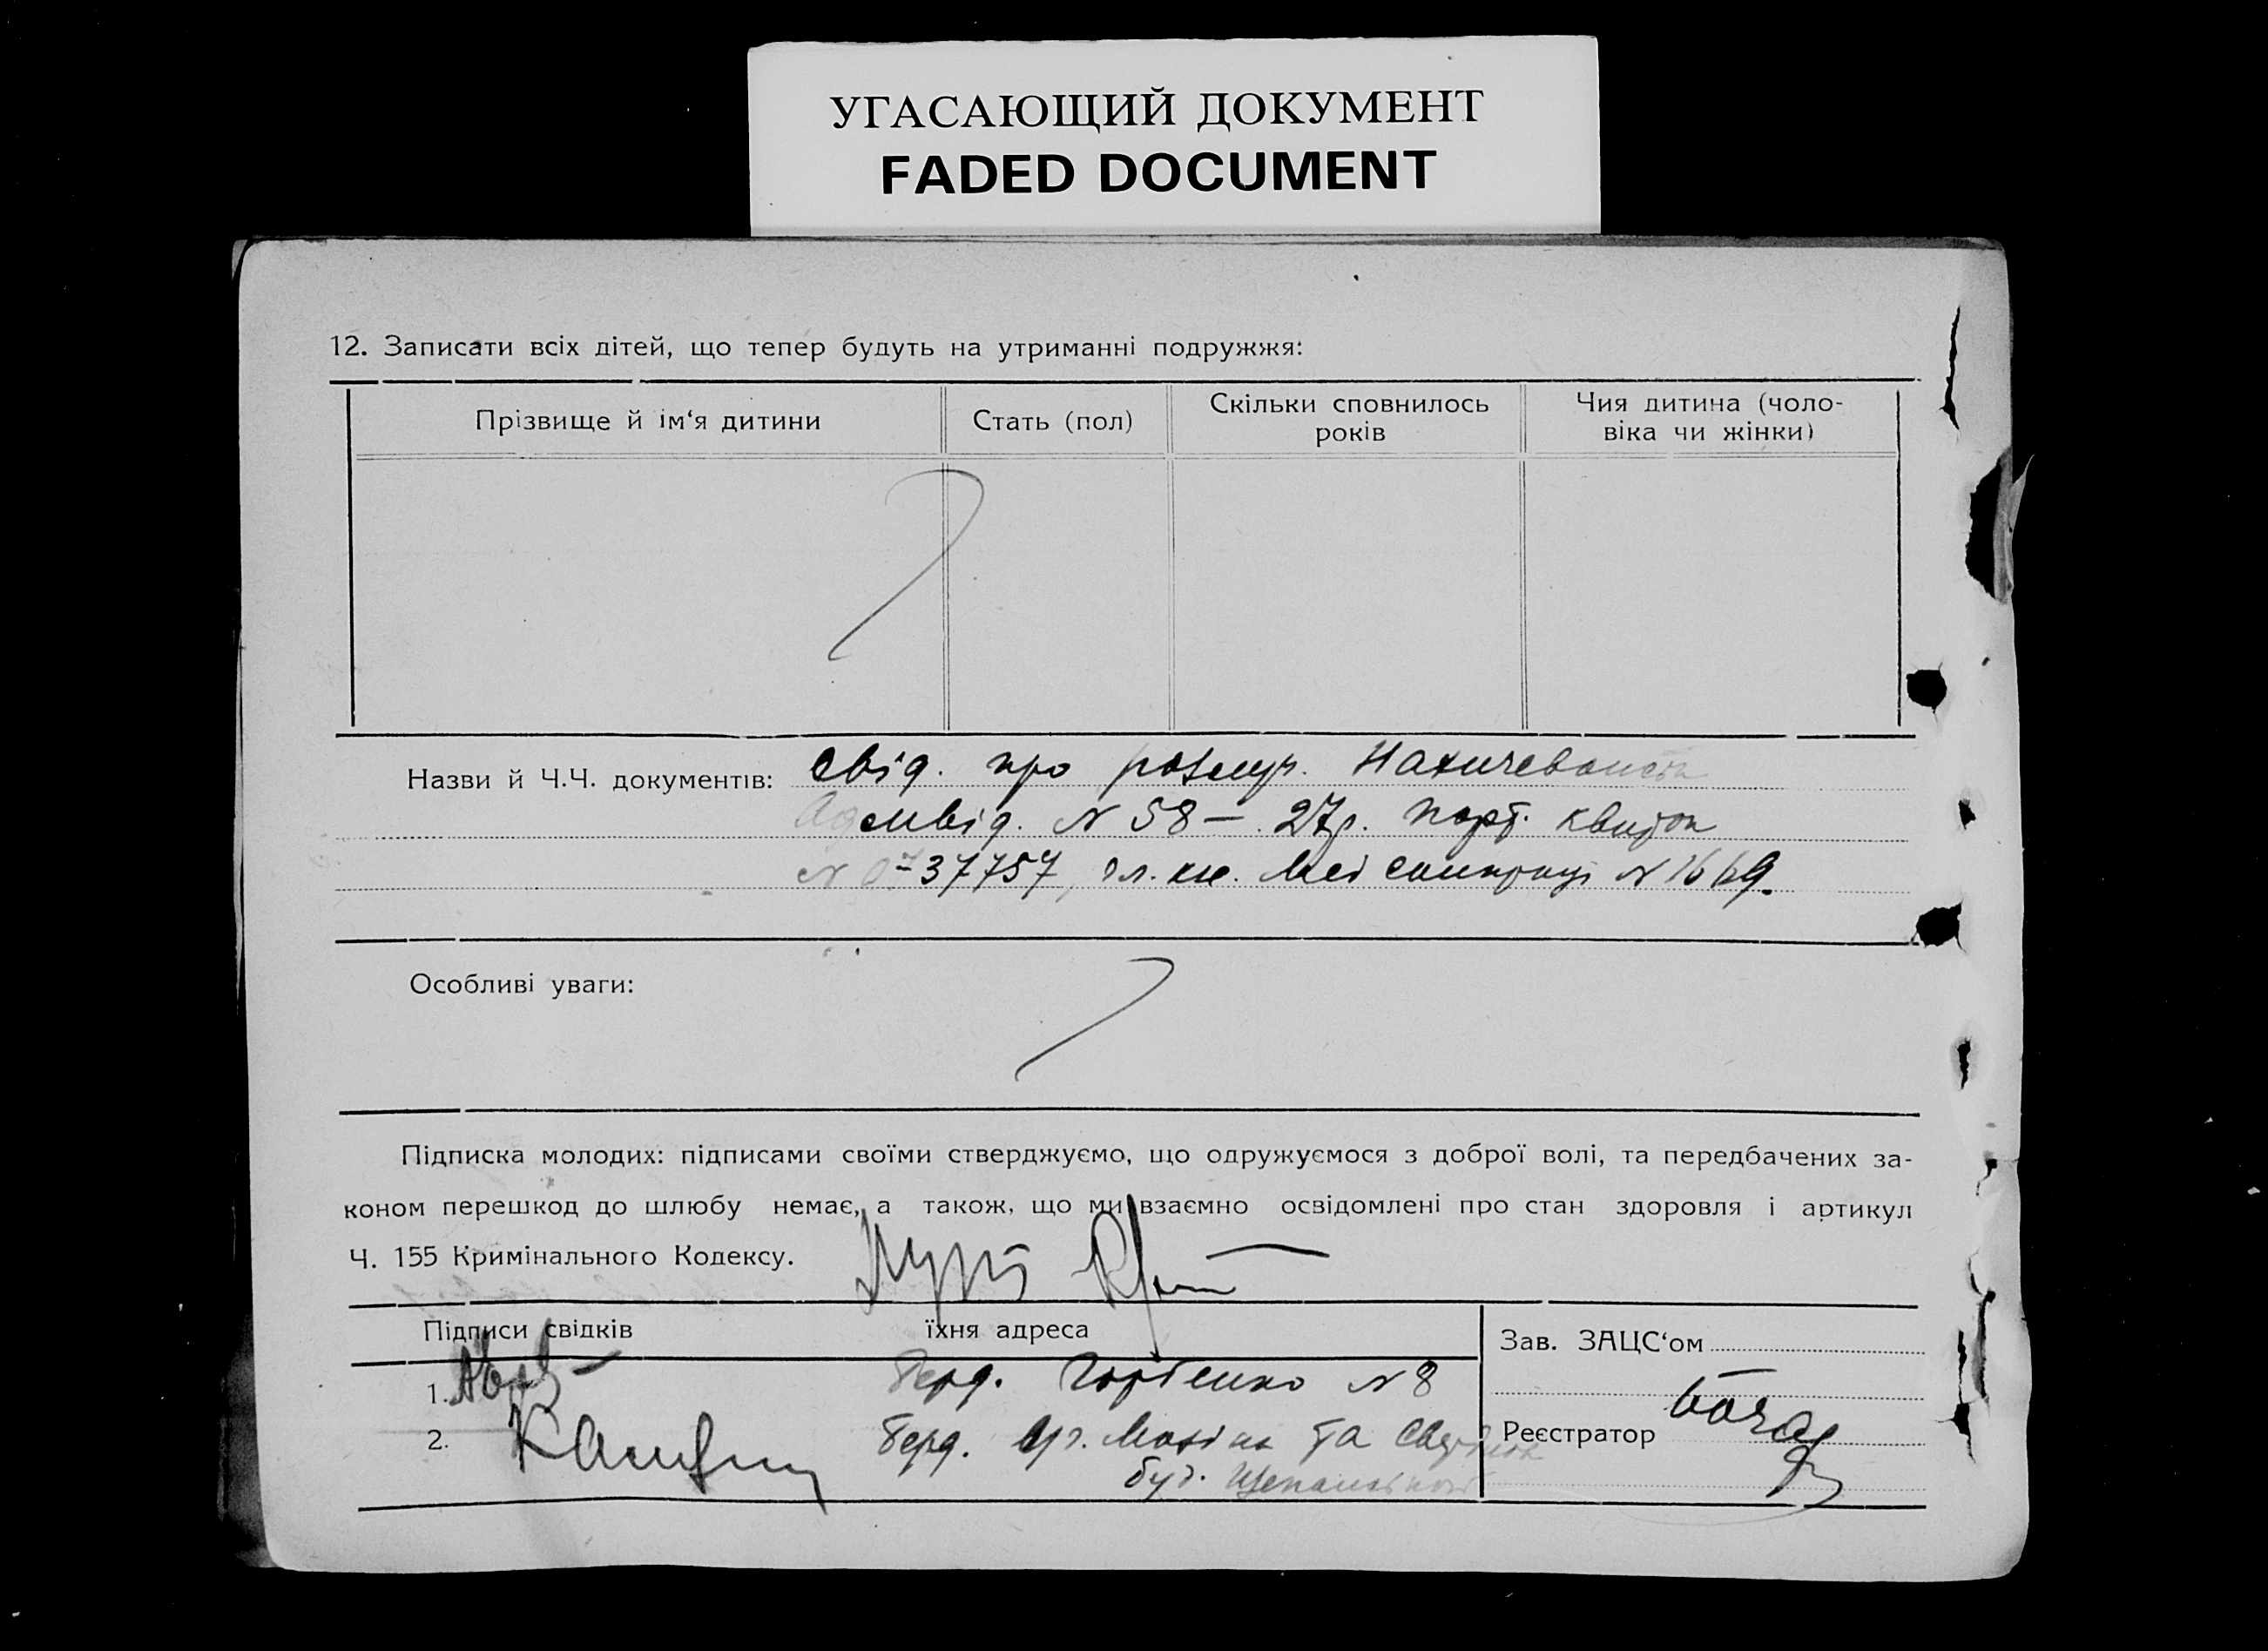 УГАСАЮЩИЙ ДОКУМЕНТ
FADED DOCUMENT
12. Записати всіх дітей, що тепер будуть на утриманні подружжя:
Прізвище й ім‘я дитини
Стать (пол)
Скільки сповнилось
років
Чия дитина (чоло-
віка чи жінки)
Назви й Ч.Ч. документів: Свід. про розлуч.
Адмвід. N 58 — 27р. Парт. квиток
37757, чл. кн. N 1669.
Особливі уваги:
Підписка молодих: підписами своїми стверджуємо, що одружуємося з доброї волі, та передбачених за-
коном перешкод до шлюбу немає, а також, що ми взаємно освідомлені про стан здоровля і артикул
Ч. 155 Кримінального Кодексу.
Підписи свідків
їхня адреса
1. Берд. Горбенко N 8
2. Берд. та
буд.
Зав. ЗАЦС‘ом
Реєстратор